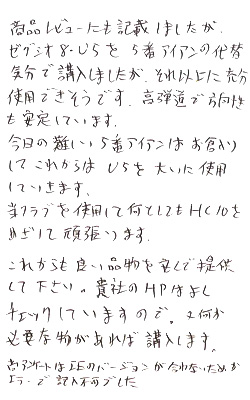 商品レビューにも記載しましたが、
ゼクシオ8・U5を5番アイアンの代替
気分で購入しましたが、それ以上に充分
使用できそうです。高弾道で方向性
も安定しています。
今日の難しい5番アイアンはお蔵入り
してこれからはU5を大いに使用
していきます。
当クラブを使用して何としてもHC10を
めざして頑張ります。
これからも良い品物を安く提供
して下さい。貴社のHPはよく
チェックしていますので。又何か
必要な物があれば購入します。
尚アンケートはIEのバージョンが合わないためか
エラーで記入不可でした